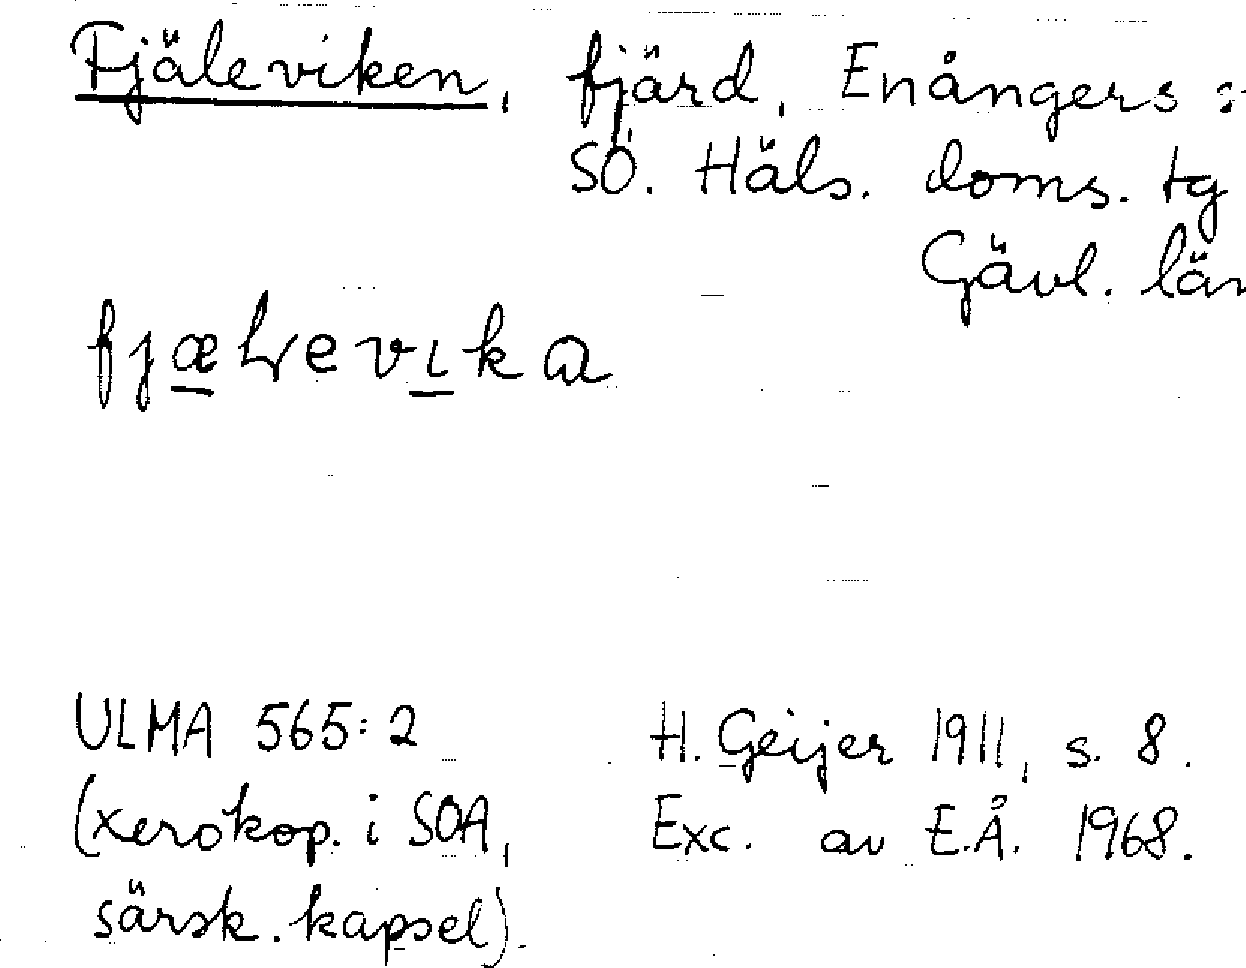 Fjäleviken, fjärd, Enångers s
SÖ. Häls. doms. tg
Gävl. län
fjæLevıka
ULMA 565:2 H. Geijer 1911, s. 8.
(xerokop. i SOA, Exc. av E.Å. 1968.
särsk. kapsel).